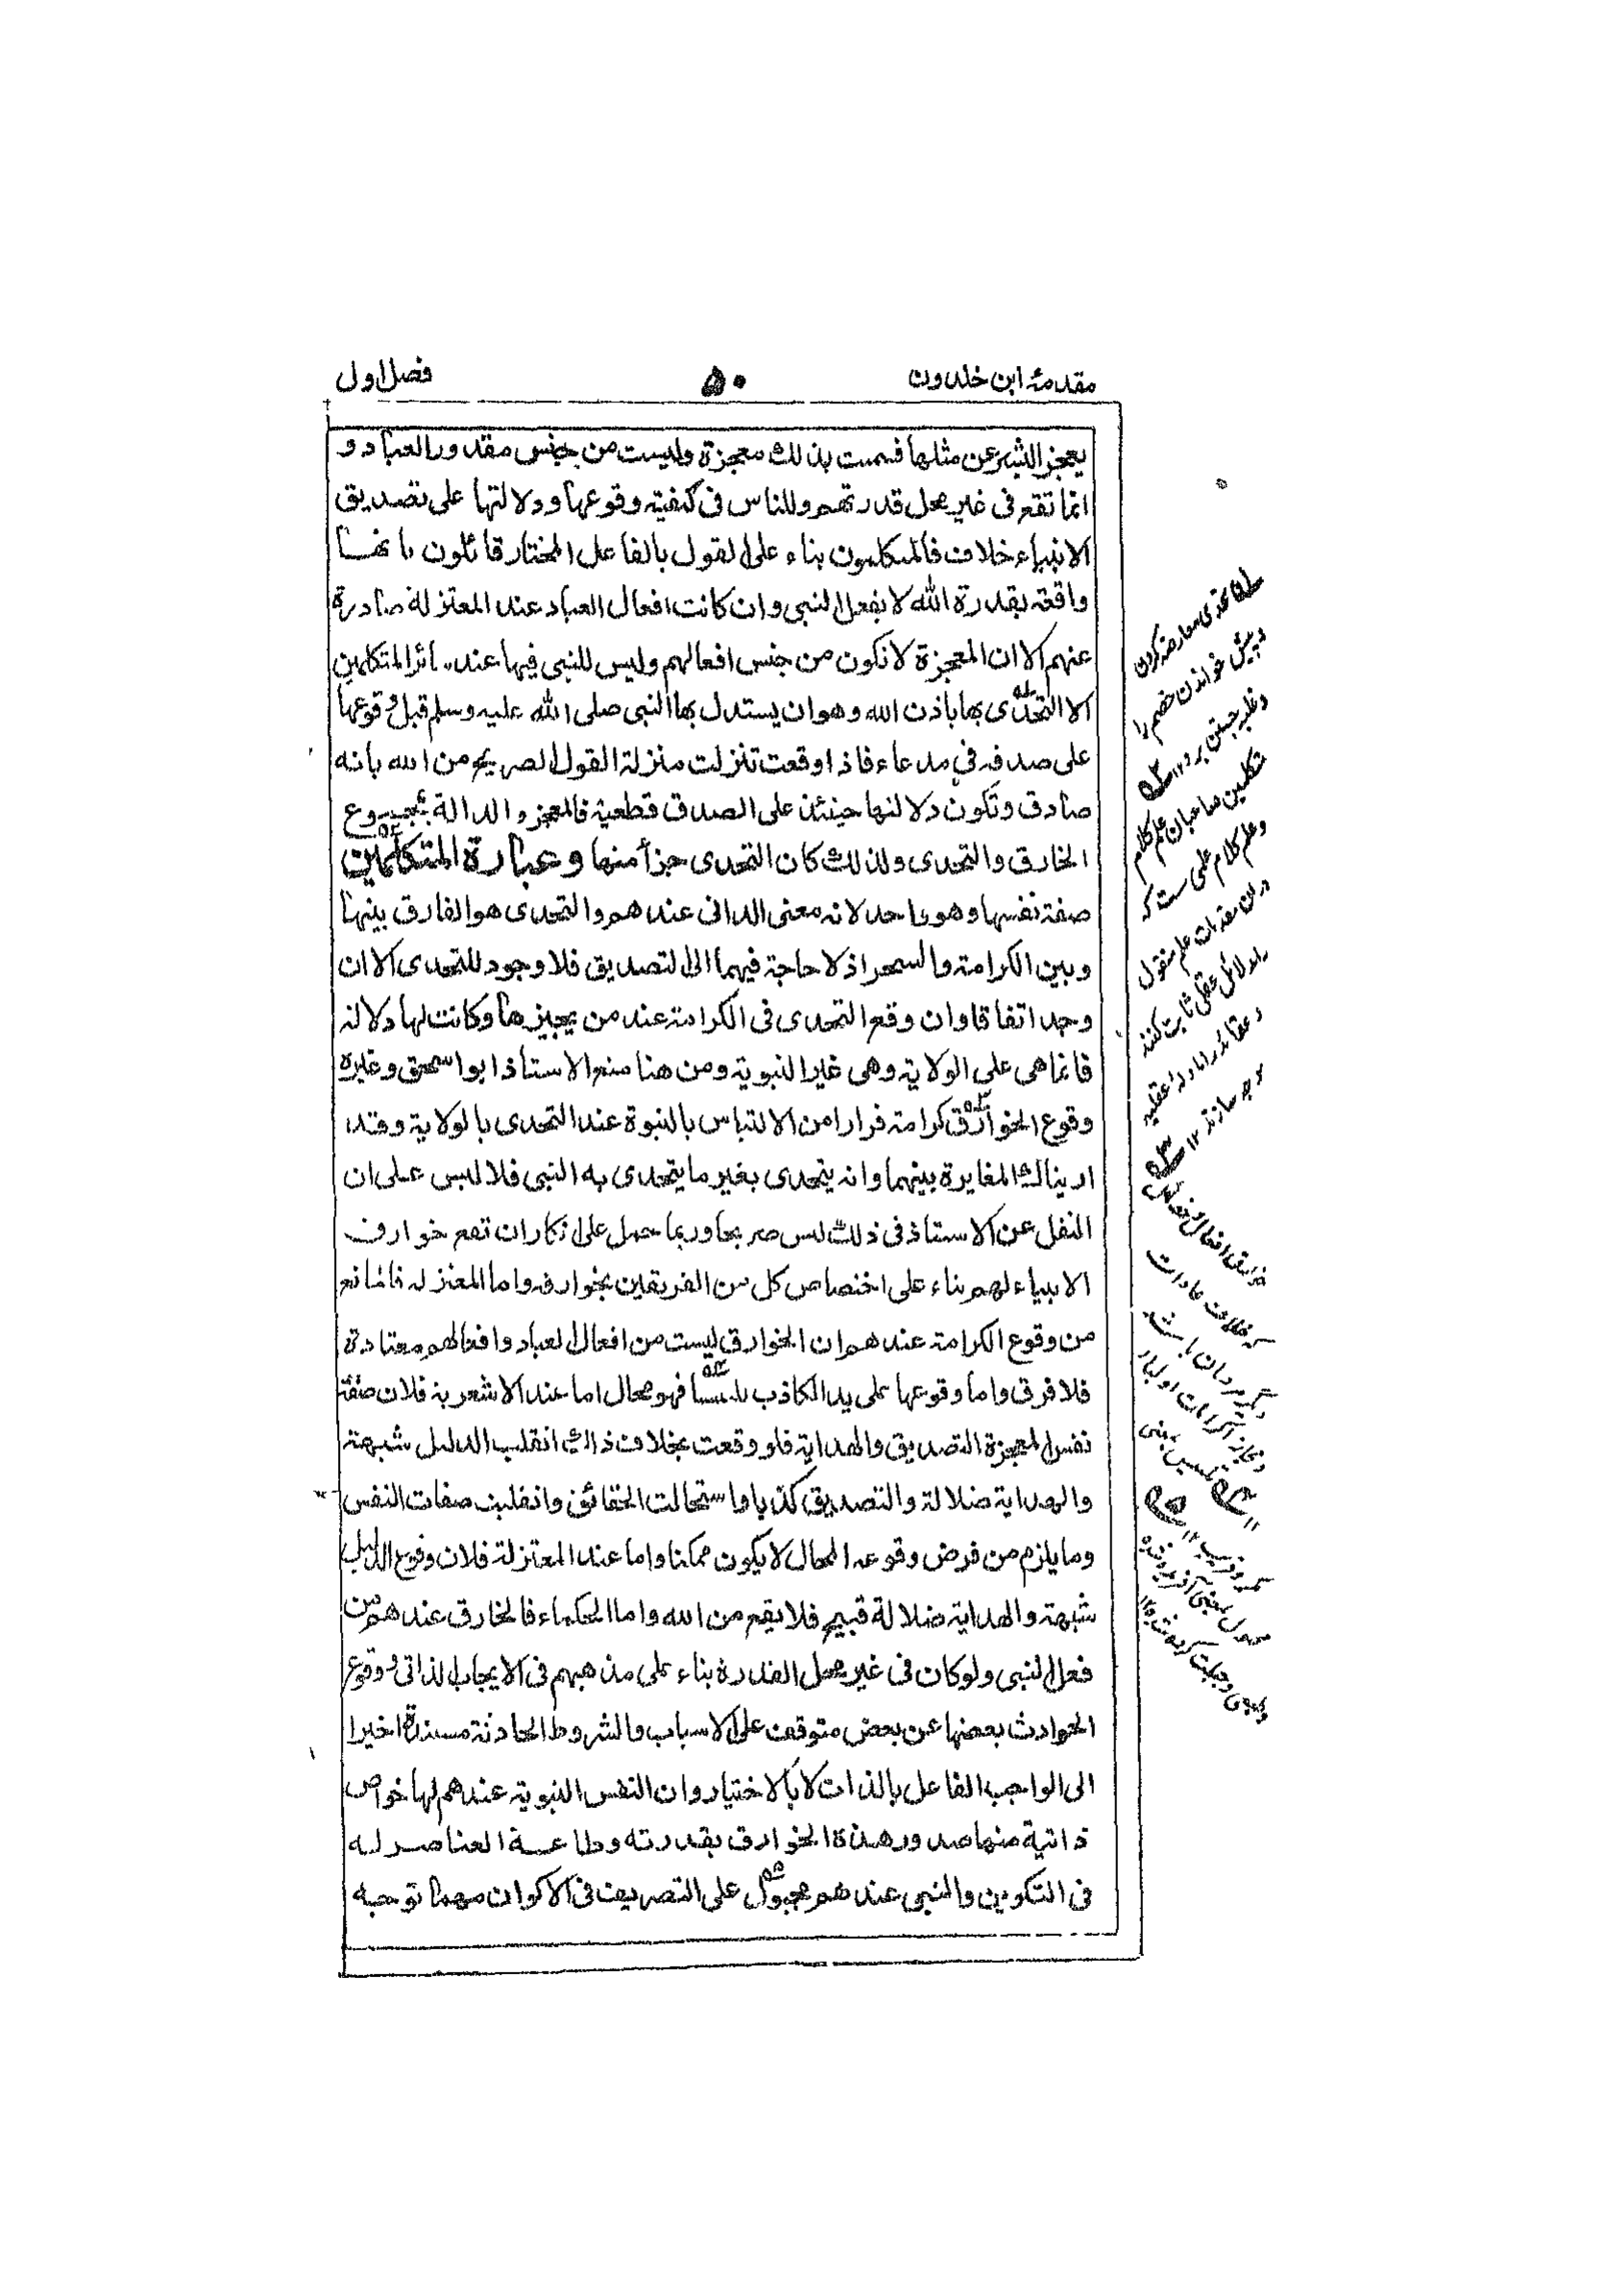 مقدمۂ ابن خلدون ۵۰ فصل اول
يعجز البشر عن مثلها فسميت بذلك معجزة وليست من جنس مقدور العباد و
انما تقع فى غير محل قدرتهم وللناس فى كيفية وقوعها ودلالتها على تصديق
الانبياء خلاف فالمتكلمون بناء على القول بالفاعل المختار قائلون بانها
واقعة بقدرة الله لا بفعل النبى وان كانت افعال العباد عند المعتزلة صادرة
عنهم الا ان المعجزة لا تكون من جنس افعالهم وليس للنبى فيها عند سائر المتكلمين
الا التحدى بها باذن الله وهو ان يستدل بها النبى صلى الله عليه وسلم قبل وقوعها
على صدقه فى مدعاه فاذا وقعت تنزلت منزلة القول الصريح من الله بانه
صادق وتكون دلالتها حينئذ على الصدق قطعية فالمعجزو الدالة بمجموع
الخارق والتحدى ولذلك كان التحدى جزأ منها وعبارة المتكلمين
صفة نفسها وهو واحد لانه معنى الذاتى عندهم والتحدى هو الفارق بينها
وبين الكرامة والسحر اذ لا حاجة فيهما الى التصديق فلا وجود للتحدى الا ان
وجد اتفاقا وان وقع التحدى فى الكرامة عند من يجيزها وكانت لها دلالة
فانما هى على الولاية وهى غير النبوية ومن هنا منع الاستاذ ابو اسحق وغيره
وقوع الخوارق كرامة فرارا من الالتباس بالنبوة عند التحدى بالولاية وقد
اريناك المغايرة بينهما وانه يتحدى بغير ما يتحدى به النبى فلا لبس على ان
النقل عن الاستاذ فى ذلك ليس صريحا وربما حمل على انكار ان تقع خوارق
الانبياء لهم بناء على اختصاص كل من الفريقين بخوارقه واما المعتزلة فالمانع
من وقوع الكرامة عندهم ان الخوارق ليست من افعال العباد وافعالهم معتادة
فلا فرق واما وقوعها على يد الكاذب تلبيسا فهو محال اما عند الاشعرية فلان صفة
نفس المعجزة التصديق والهداية فلو وقعت بخلاف ذالك انقلب الدليل شبهة
والهداية ضلالة والتصديق كذبا واستحالت الحقائق وانقلبت صفات النفس
وما يلزم من فرض وقوعه المحال لا يكون ممكنا واما عند المعتزلة فلان وقوع الدليل
شبهة والهداية ضلالة قبيح فلا يقع من الله واما الحكماء فالخارق عندهم من
فعل النبى ولو كان فى غير محل القدرة بناء على مذهبهم فى الايجاب الذاتى ووقوع
الحوادث بعضها عن بعض متوقف على الاسباب والشروط الحادثة مستندة اخيرا
الى الواجب الفاعل بالذات لا بالاختيار وان النفس النبوية عندهم لها خواص
ذاتية منها صدور هذة الخوارق بقدرته وطاعة العناصر له
فى التكوين والنبى عندهم مجبول على التصريف فى الاكوان مهما توجه
تحدى معارضه كردن
و پيش خواندن خصم را
و غلبه جستن برو ۱۲
متكلمين صاحبان علم كلام
و علم كلام علمى ست كه
دران مقدمات علم منقول
را دلائل عقلى ثابت كنند
و عقائد را بادلهٔ عقليه
موجه سازند ۱۲
كه خلاف عادات
ديگر مردمان باشد